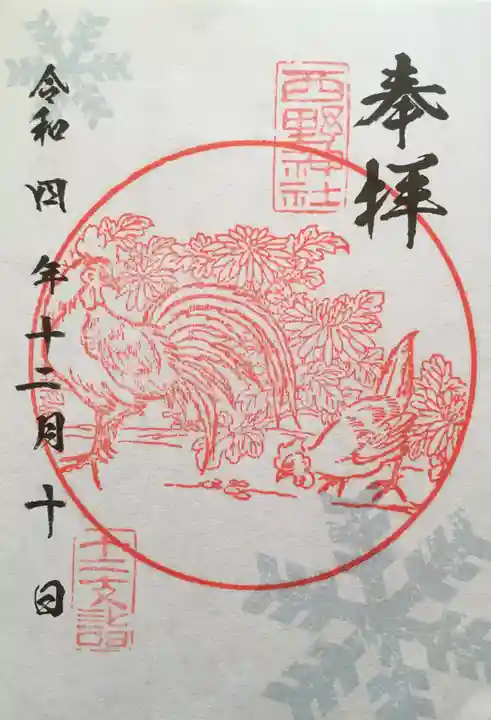 奉拝
西野神社
令和四年十二月十日
十二支詣